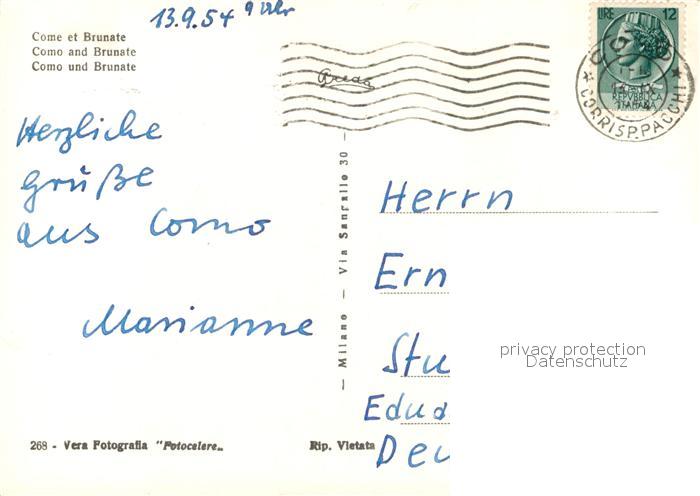 13.9.54 9 Uhr
Come et Brunate
Como and Brunate
Como und Brunate
LIRE 12
REPVBBLICA
ITALIANA
COMO
CORRISP. PACCHI
Herzliche
Grüße
aus Como
Marianne
- Milano - Via Sanrallo 30 -
Herrn
Ern
Stu
Edua
Deu
privacy protection
Datenschutz
268 - Vera Fotografia "Fotocelere„
Rip. Vietata